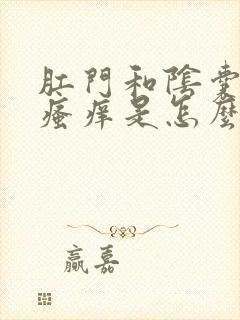 肛門和陰囊
瘙痒是怎麼
贏嘉